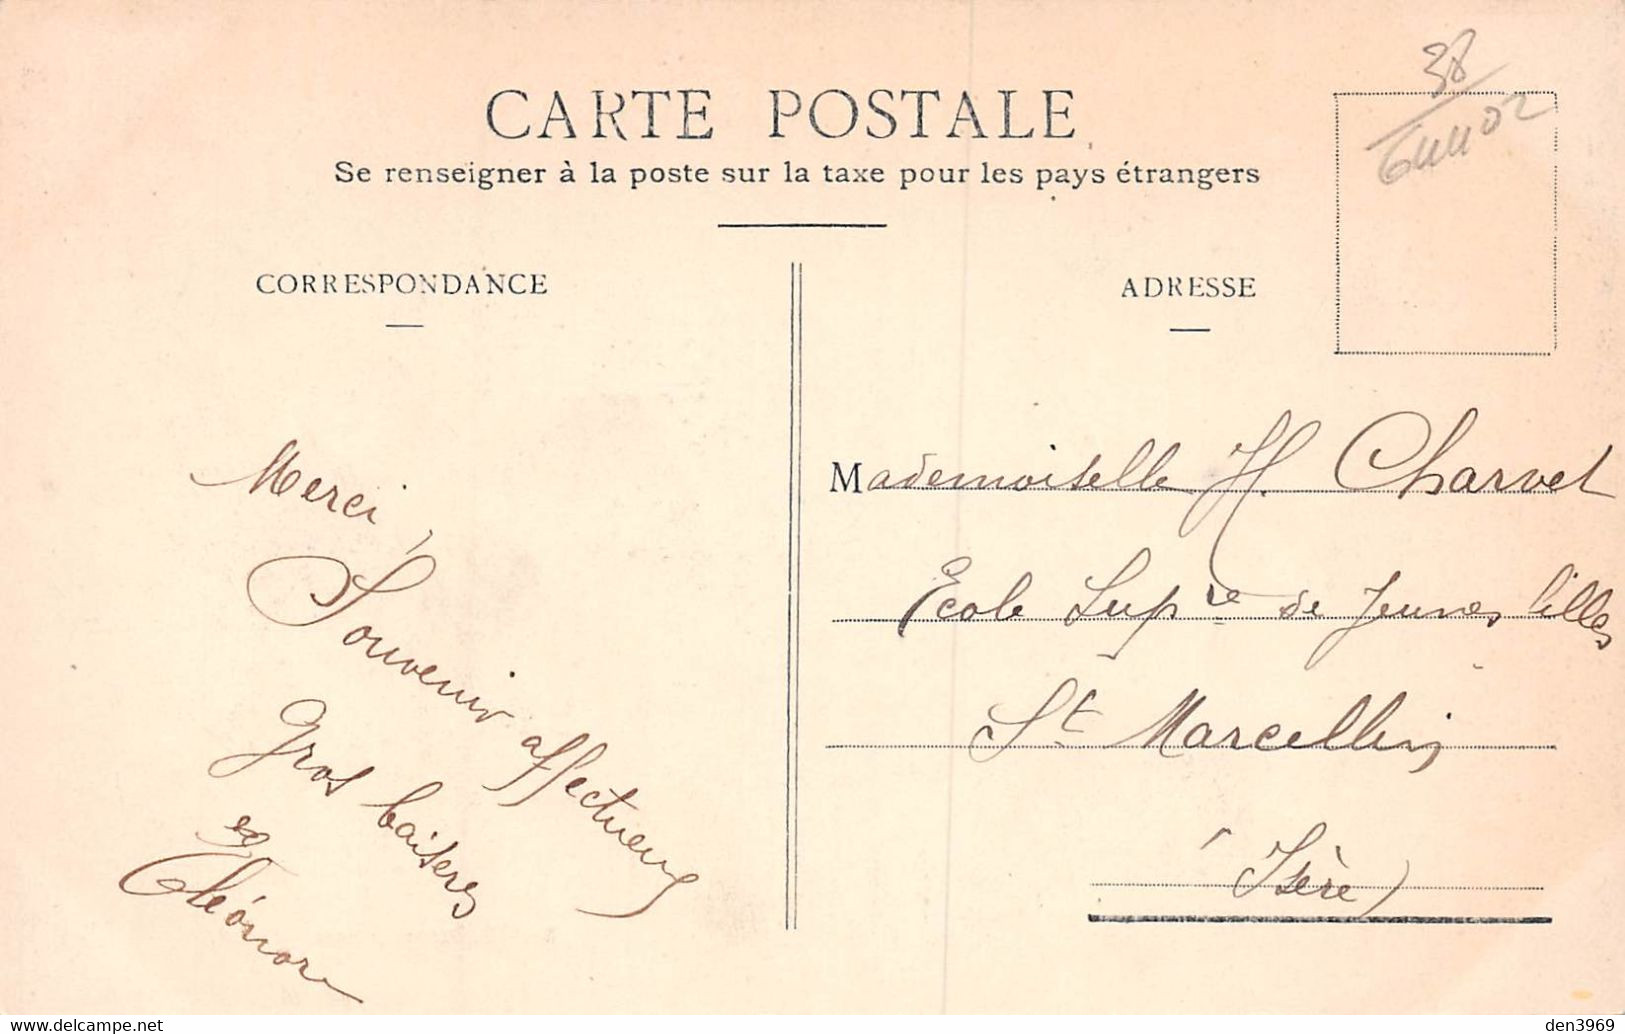 CARTE POSTALE
Se renseigner à la poste sur la taxe pour les pays étrangers
38
CORRESPONDANCE
ADRESSE
Merci,
Souvenir affectueux
Gros baisers
Eléonore
Mademoiselle H. Charvet
Ecole Supre de Jeunes filles
St Marcellin
(Isère)
delcampe.net
den3969